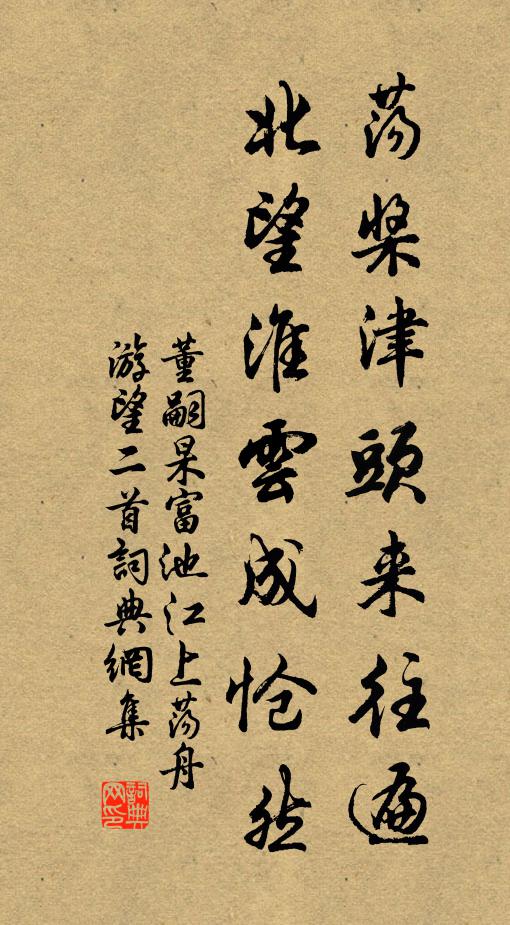 荡桨津頭来往遍
北望淮雲成怆然
董嗣杲富池江上荡舟
游望二首詞典網集
詞典网印